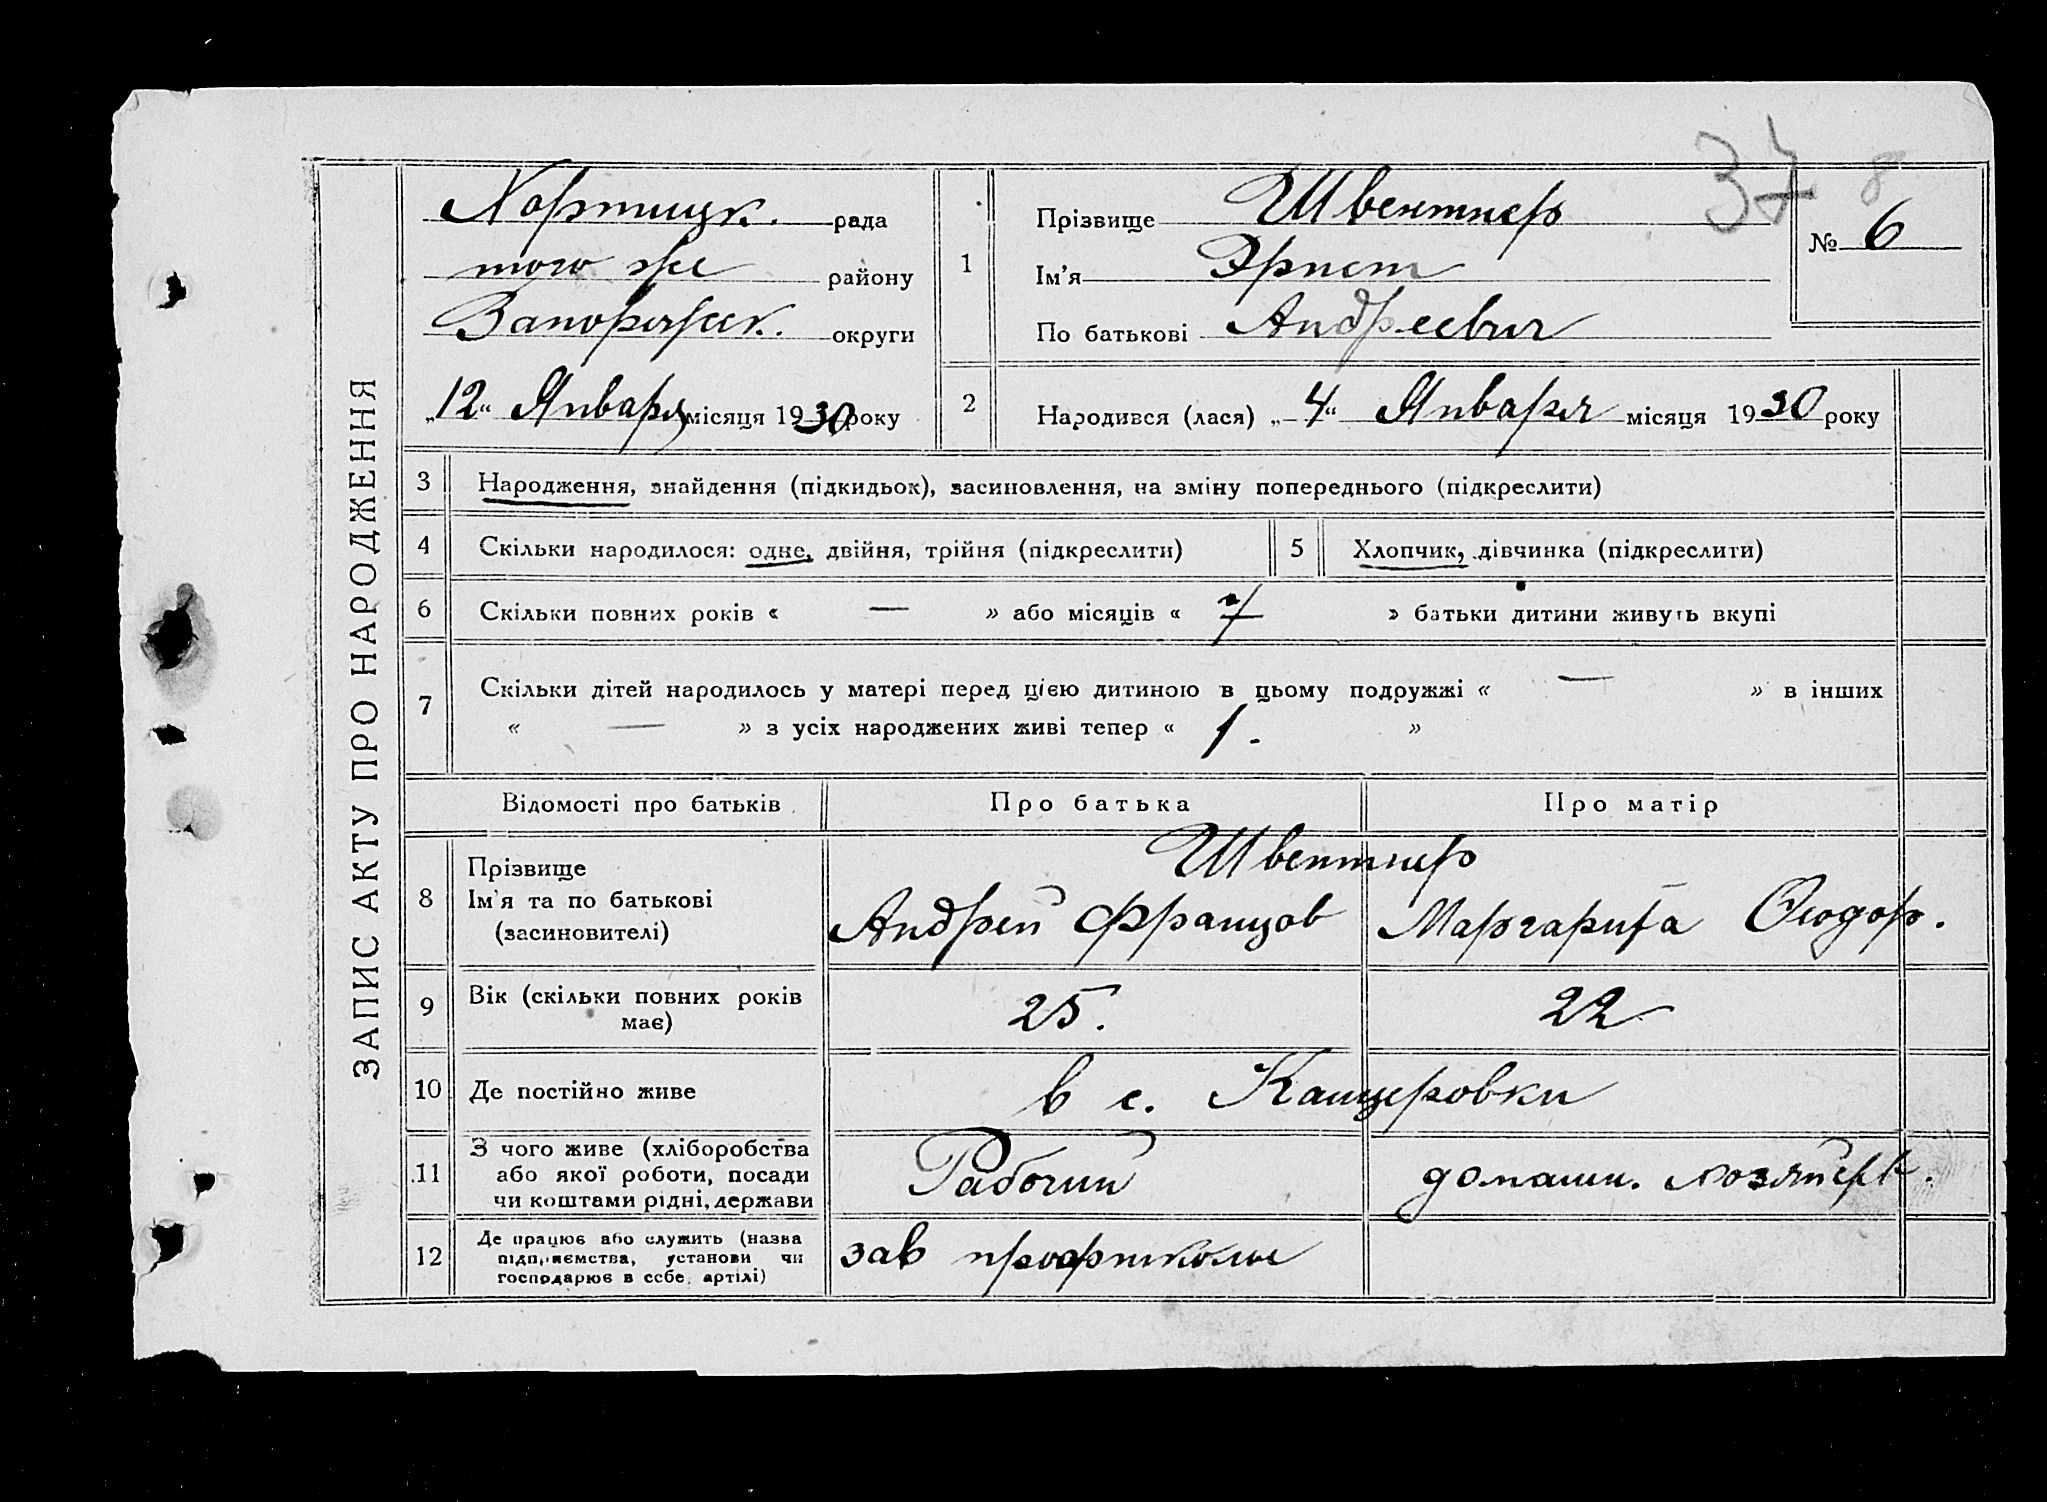 37 8
ЗАПИС АКТУ ПРО НАРОДЖЕННЯ
Хортицк. рада
того же району
Запорожск. округи
„12“ Января місяця 1930 року
1
Прізвище Швентнер
Ім'я Эрнст
По батькові Андреевич
№ 6
2 Народився (лася) „4“ Января місяця 1930 року
3 Народження, знайдення (підкидьок), засиновлення, на зміну попереднього (підкреслити)
4 Скільки народилося: одне, двійня, трійня (підкреслити) 5 Хлопчик, дівчинка (підкреслити)
6 Скільки повних років « — » або місяців « 7 » батьки дитини живуть вкупі
7 Скільки дітей народилось у матері перед цією дитиною в цьому подружжі « — » в інших
« — » з усіх народжених живі тепер « 1. »
Відомості про батьків Про батька Про матір
8 Прізвище
Ім'я та по батькові
(засиновителі)
Швентнер
Андрей Францов Маргарита Феодор.
9 Вік (скільки повних років
має)
25. 22
10 Де постійно живе в с. Канцеровки
11 З чого живе (хліборобства
або якої роботи, посади
чи коштами рідні, держави
Рабочий домашн. хозяйств.
12 Де працює або служить (назва
підприємства, установи чи
господарює в себе, артілі)
зав профшколы